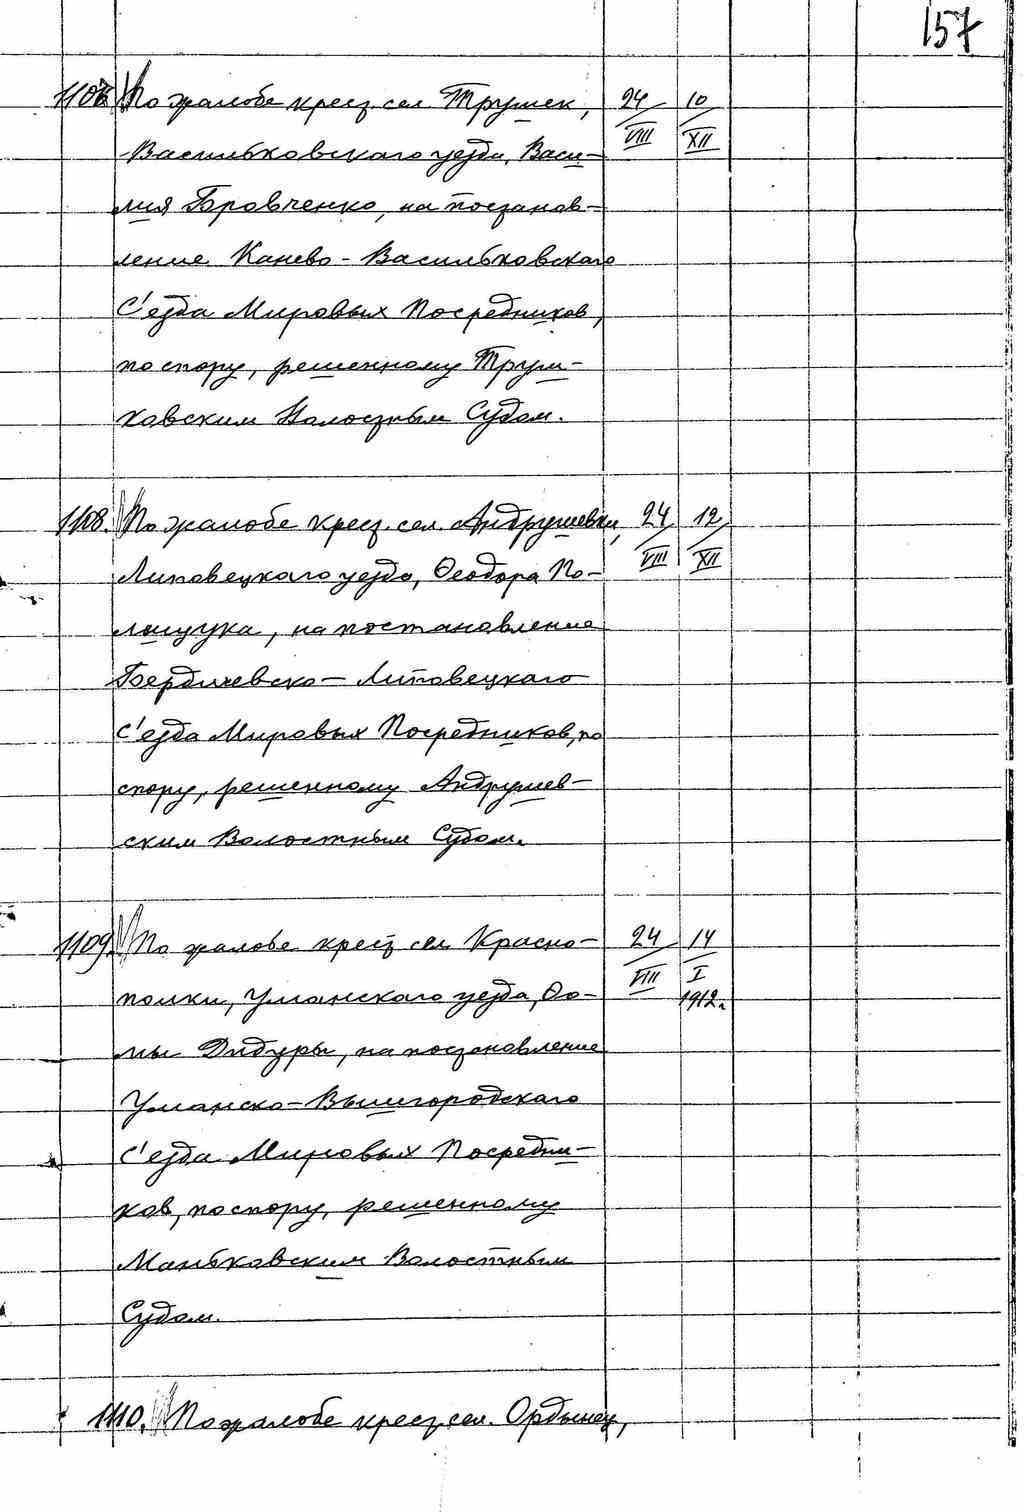 157
1107. По жалобе крест. сел. Трушек, 24/VIII 10/XII
Васильковского уезда, Васи-
лия Бровченко, на постанов-
ление Канево-Васильковского
С'езда Мировых Посредников,
по спору, решенному Труш-
ковским Волостным Судом.
1108. По жалобе крест. сел. Андрушевки, 24/VIII 12/XII
Липовецкаго уезда, Феодора По-
лищука, на постановление
Бердичевско-Липовецкаго
С'езда Мировых Посредников, по
спору, решенному Андрушев-
ским Волостным Судом.
1109. По жалобе крест. сел. Красно- 24/VIII 14/I 1912г.
полки, Уманскаго уезда, Фо-
мы Дидуры, на постановление
Уманско-Звенигородскаго
С'езда Мировых Посредни-
ков, по спору, решенному
Маньковским Волостным
Судом.
1110. По жалобе крест. сел. Ордынец,